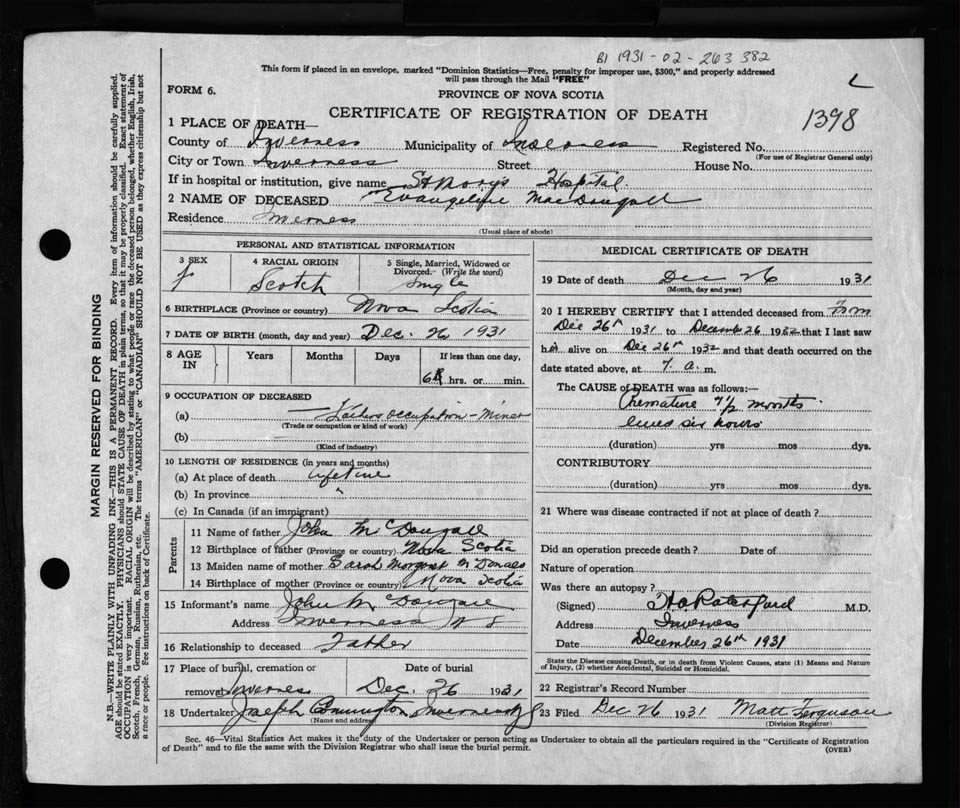 B1 1931-02-263382
This form if placed in an envelope, marked "Dominion Statistics—Free, penalty for improper use, $300," and properly addressed
will pass through the Mail "FREE"
L
FORM 6.
PROVINCE OF NOVA SCOTIA
CERTIFICATE OF REGISTRATION OF DEATH
1398
1 PLACE OF DEATH—
County of Inverness Municipality of Inverness Registered No.
(For use of Registrar General only)
City or Town Inverness Street House No.
If in hospital or institution, give name St Mary's Hospital.
2 NAME OF DECEASED Evangeline MacDougall
Residence Inverness
(Usual place of abode)
PERSONAL AND STATISTICAL INFORMATION
3 SEX
f
4 RACIAL ORIGIN
Scotch
5 Single, Married, Widowed or
Divorced. (Write the word)
Single
6 BIRTHPLACE (Province or country) Nova Scotia
7 DATE OF BIRTH (month, day and year) Dec. 26 1931
8 AGE
IN
Years
Months
Days
If less than one day,
6 hrs. or min.
9 OCCUPATION OF DECEASED
(a) Fathers occupation - Miner
(Trade or occupation or kind of work)
(b)
(Kind of industry)
10 LENGTH OF RESIDENCE (in years and months)
(a) At place of death lifetime
(b) In province "
(c) In Canada (if an immigrant)
Parents
11 Name of father John McDougall
12 Birthplace of father (Province or country) Nova Scotia
13 Maiden name of mother Sarah Margaret McDonald
14 Birthplace of mother (Province or country) Nova Scotia
15 Informant's name John McDougall
Address Inverness N S
16 Relationship to deceased Father
17 Place of burial, cremation or
removal Inverness
Date of burial
Dec. 26 1931
18 Undertaker Joseph Inverness NS
(Name and address)
MEDICAL CERTIFICATE OF DEATH
19 Date of death Dec 26 1931
(Month, day and year)
20 I HEREBY CERTIFY that I attended deceased from From
Dec 26th 1931 to December 26 1932 that I last saw
h alive on Dec 26th 1932 and that death occurred on the
date stated above, at 7. a. m.
The CAUSE of DEATH was as follows:—
Premature 7½ months
lived six hours
(duration) yrs mos dys.
CONTRIBUTORY
(duration) yrs mos dys.
21 Where was disease contracted if not at place of death?
Did an operation precede death? Date of
Nature of operation
Was there an autopsy?
(Signed) M.D.
Address Inverness
Date December 26th 1931
State the Disease causing Death, or in death from Violent Causes, state (1) Means and Nature
of Injury, (2) whether Accidental, Suicidal or Homicidal.
22 Registrar's Record Number
23 Filed Dec 26 1931 Matt Ferguson
(Division Registrar)
Sec. 46—Vital Statistics Act makes it the duty of the Undertaker or person acting as Undertaker to obtain all the particulars required in the "Certificate of Registration
of Death" and to file the same with the Division Registrar who shall issue the burial permit.
(OVER)
MARGIN RESERVED FOR BINDING
N.B.—WRITE PLAINLY WITH UNFADING INK—THIS IS A PERMANENT RECORD. Every item of information should be carefully supplied.
AGE should be stated EXACTLY. PHYSICIANS should STATE CAUSE OF DEATH in plain terms, so that it may be properly classified. Exact statement of
OCCUPATION is very important. RACIAL ORIGIN will be described by stating to what people or race the deceased person belonged, whether English, Irish,
Scotch, French, German, Russian, Ruthenian, etc. The terms "AMERICAN" or "CANADIAN" SHOULD NOT BE USED as they express citizenship but not
a race or people. See instructions on back of Certificate.